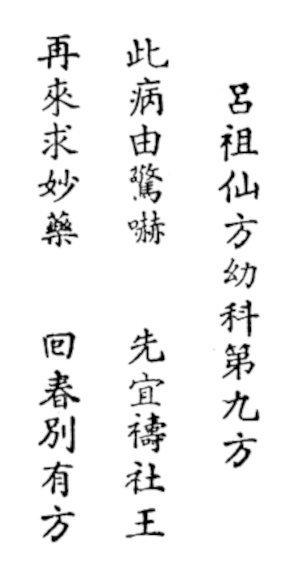 呂祖仙方幼科第九方
此病由驚嚇　先宜禱社王
再來求妙藥　回春別有方